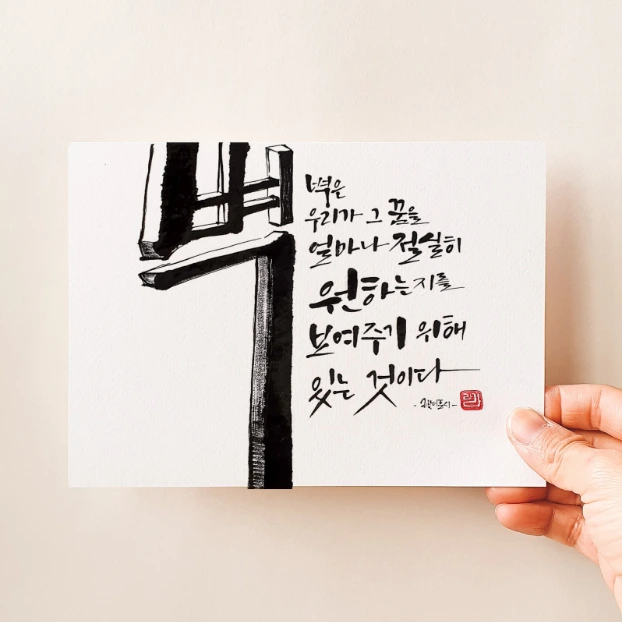 벽
벽은
우리가 그 꿈을
얼마나 절실히
원하는지를
보여주기 위해
있는 것이다